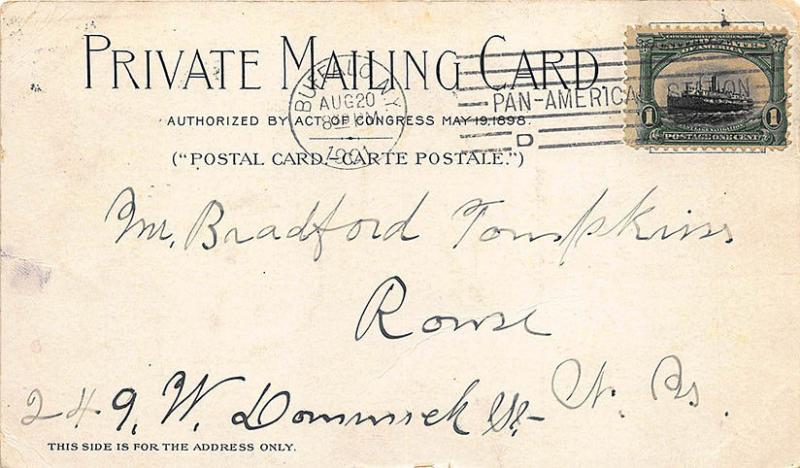 PRIVATE MAILING CARD
AUTHORIZED BY ACT OF CONGRESS MAY 19, 1898.
("POSTAL CARD.–CARTE POSTALE.")
BUFFALO N.Y.
AUG 20
1901
PAN-AMERICA STATION
D
COMMEMORATIVE SERIES 1901
UNITED STATES
OF AMERICA
1 1
POSTAGE ONE CENT
Mr. Bradford Tompkins
Rome
N. Y.
249. W. Dominick St-
THIS SIDE IS FOR THE ADDRESS ONLY.